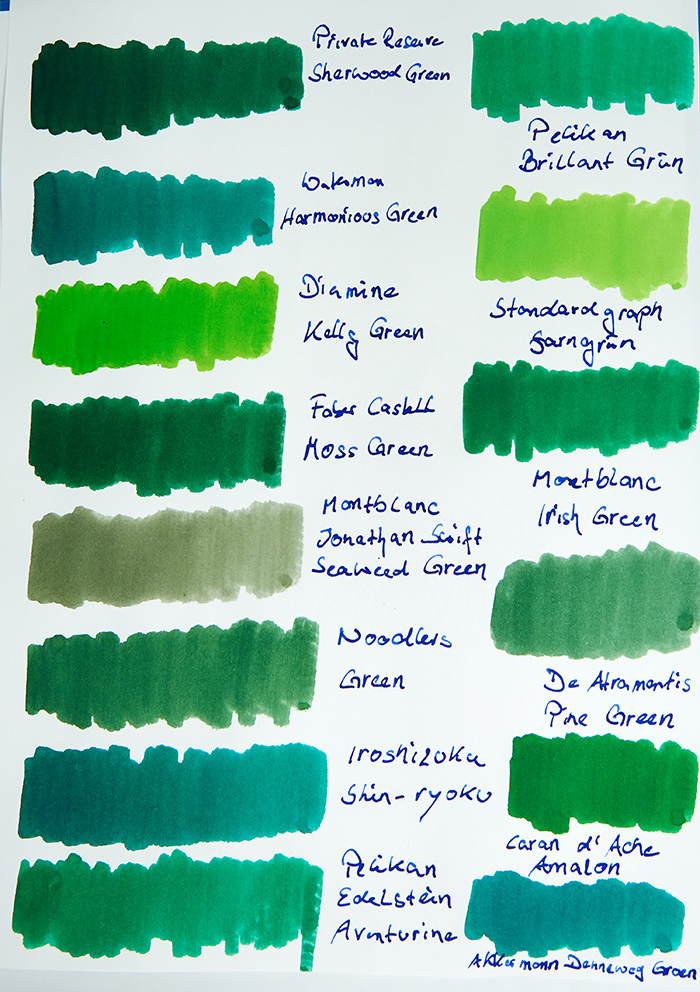 Private Reserve
Sherwood Green
Waterman
Harmonious Green
Diamine
Kelly Green
Faber Castell
Moss Green
Montblanc
Jonathan Swift
Seaweed Green
Noodlers
Green
Iroshizuku
Shin-ryoku
Pelikan
Edelstein
Aventurine
Pelikan
Brillant Grün
Standardgraph
Farngrün
Montblanc
Irish Green
De Atramentis
Pine Green
Caran d'Ache
Amalon
Akkermann Denneweg Groen